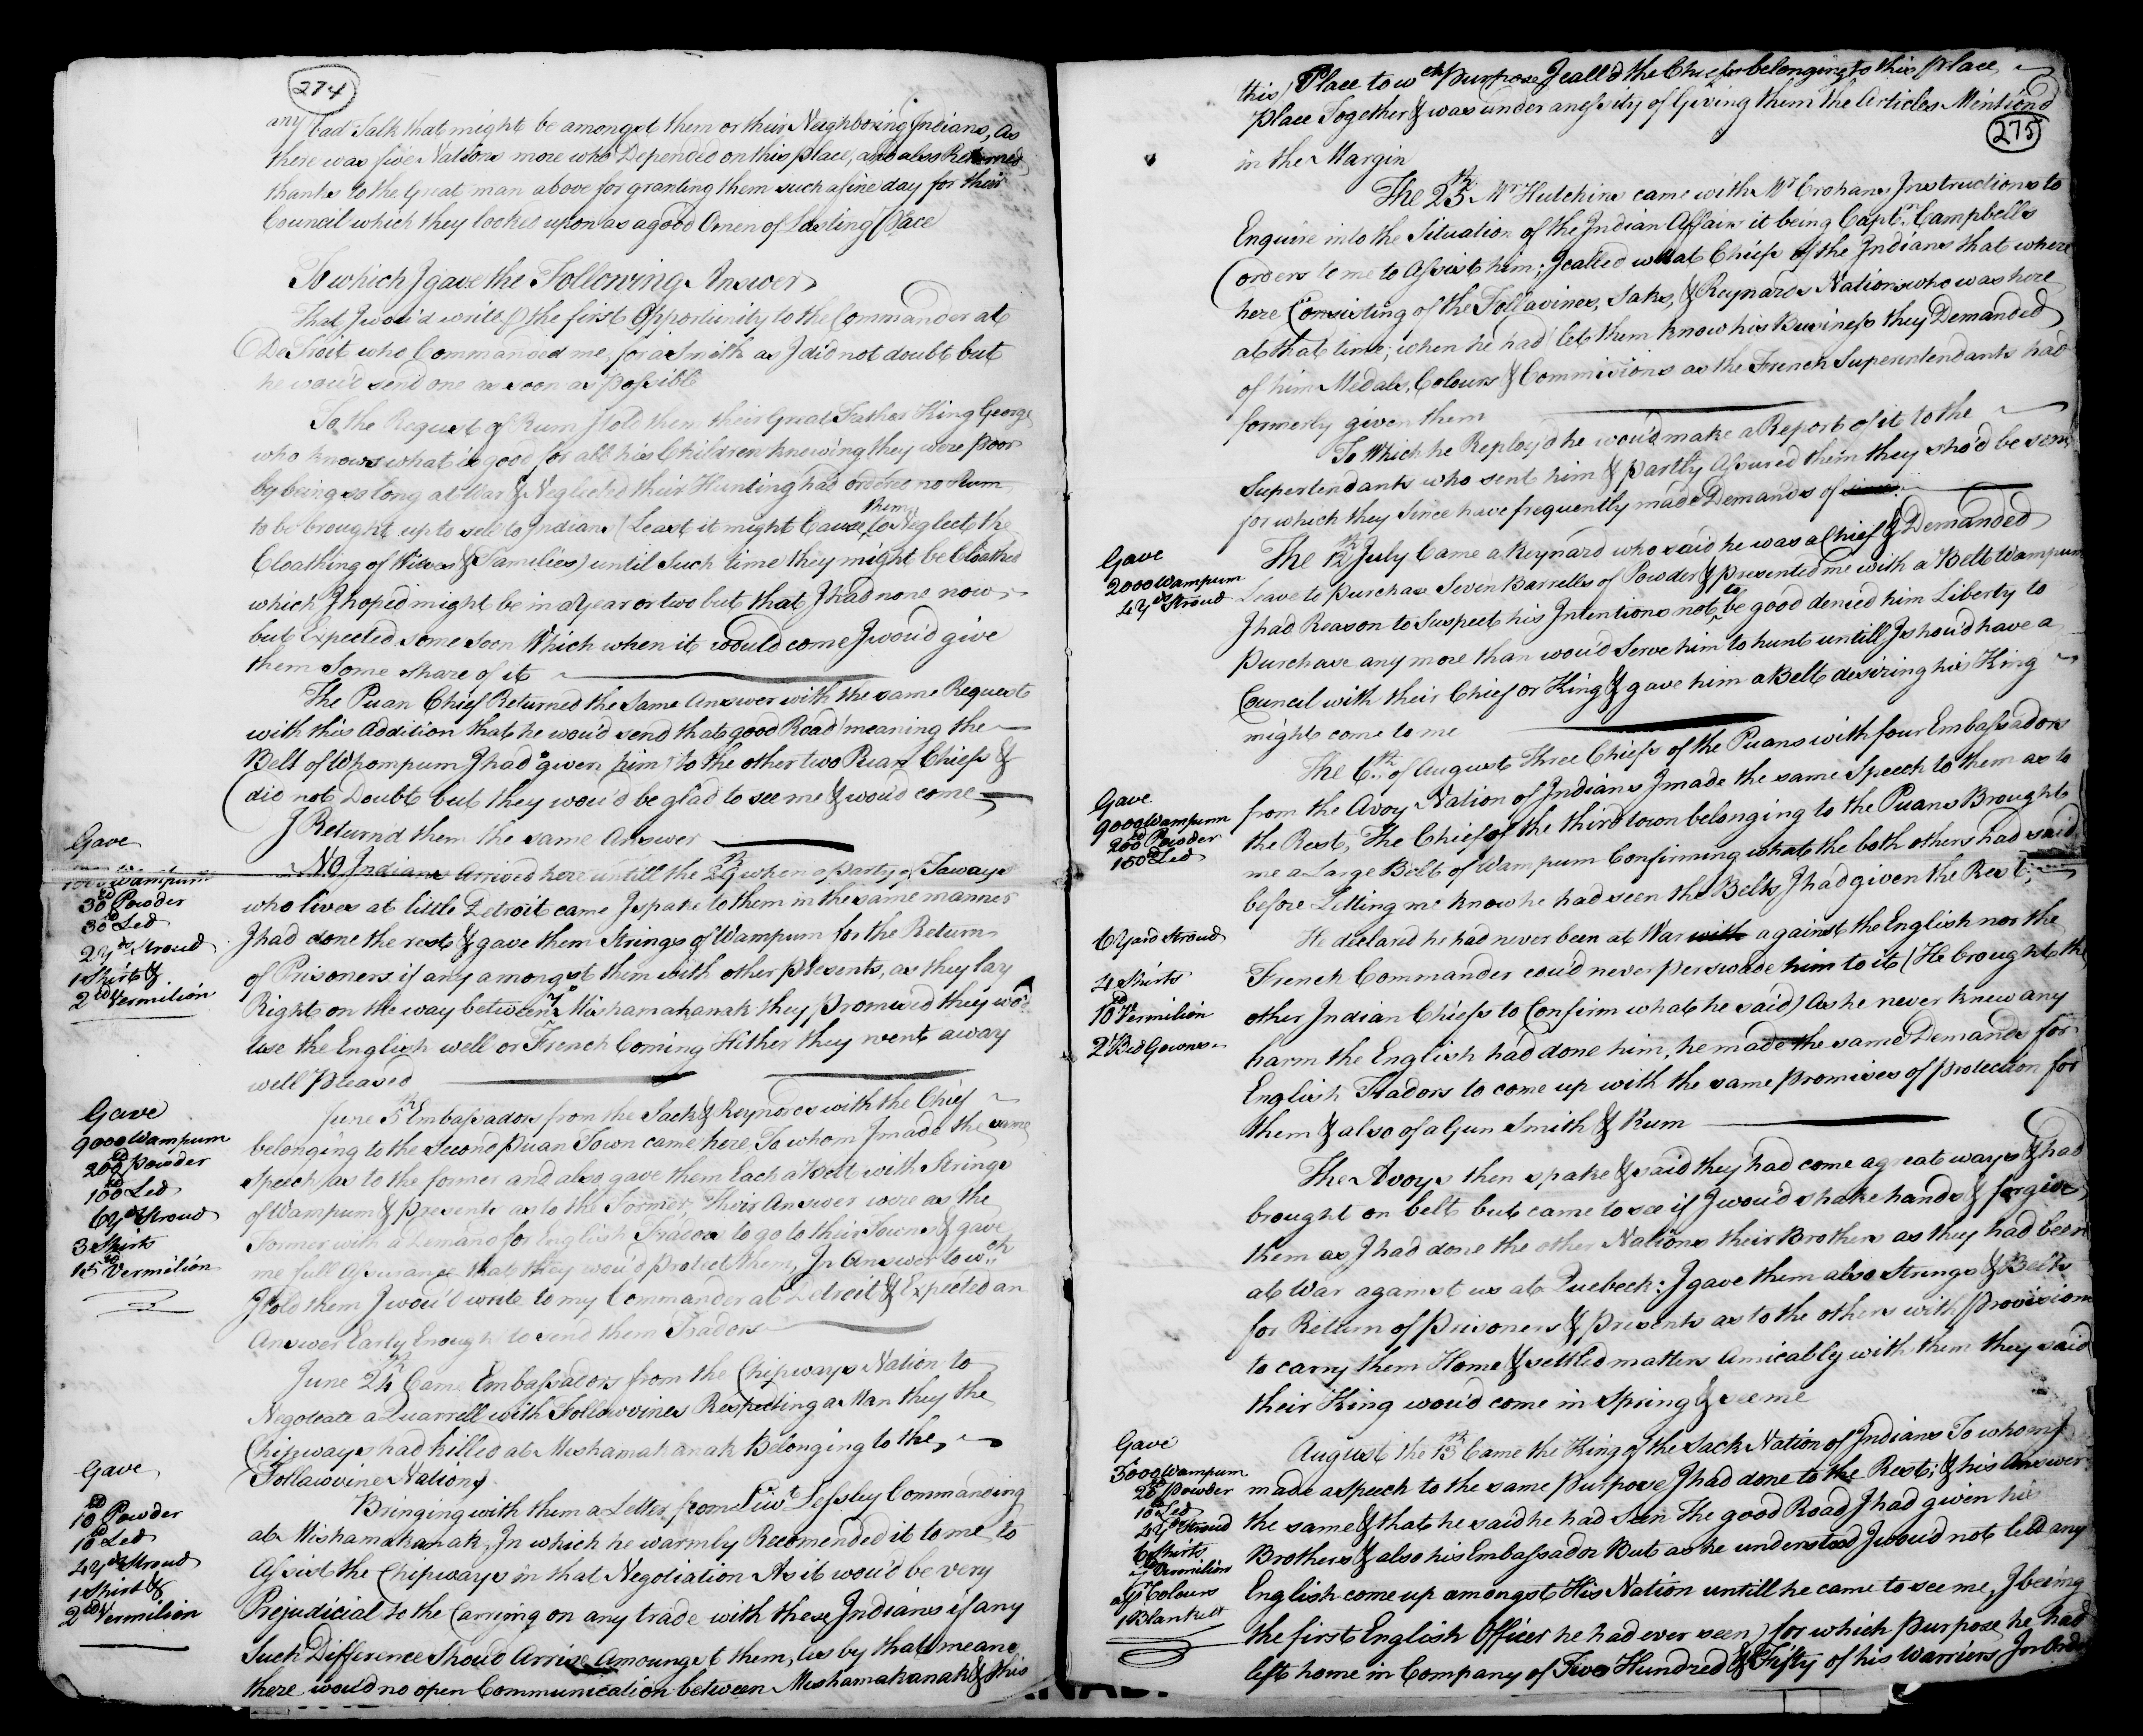 274
any bad Talk that might be amongst them or their Neighboring Indians, As
there was five Nations more who Depended on this place, and also Returned
thanks to the Great man above for granting them such a fine day for their
Council which they looked upon as a good Omen of Lasting Peace
To which I gave the Following Answer
That I wou'd write the first Opportunity to the Commander at
DeTroit who Commanded me, for a Smith as I did not doubt but
he wou'd send one as soon as possible
To the Request of Rum I told them their Great Father King George
who knows what is good for all his Children knowing they were poor
by being so long at War & Neglected their Hunting had ordered no Rum
to be brought up to sell to Indians (Least it might Cause them to Neglect the
Cloathing of Wives & Families) until Such time they might be Cloathed
which I hoped might be in a Year or two but that I had none now
but Expected some soon Which when it would come I wou'd give
them Some share of it
The Puan Chief Returned the Same Answer with the same Request
with this Addition that he wou'd send that good Road meaning the
Belt of Whompum I had given him to the other two Puan Chiefs &
did not Doubt but they wou'd be glad to see me & wou'd come
I Return'd them the same Answer
Gave
Wampum
30 Powder
30 Led
2 Yds Stroud
1 Shirt &
2 Vermilion
No Indians arrived here untill the 29th when a party of Taways
who lives at little Detroit came I spake to them in the same manner
I had done the rest & gave them Strings of Wampum for the Return
of Prisoners if any amongst them with other presents, as they lay
Right on the way between & Mishamakanak they promised they wo'd
use the English well or French Coming Hither they went away
well pleased
Gave
9000 Wampum
200 powder
100 Led
6 Yds Stroud
3 Shirts
15 Vermilion
June 5th Embassadors from the Sack & Reynards with the Chief
belonging to the Second Puan Town came here To whom I made the same
Speech as to the former and also gave them Each a Belt with Strings
of Wampum & presents as to the Former, Their Answer were as the
Former with a Demand for English Traders to go to their Towns & gave
me full Assurance that they wou'd protect them, In Answer to wch
I told them I wou'd write to my Commander at Detroit & Expected an
Answer Early Enough to send them Traders
June 24th Came Embassadors from the Chipways Nation to
Negoteate a Quarrell with Follawvines Respecting a Man they the
Chipways had killed at Mishamakanak Belonging to the
Follawvine Nation
Gave
10 Powder
10 Led
4 Yds Stroud
1 Shirt &
2 Vermilion
Bringing with them a Letter from Liut Lessley Commanding
at Mishamakanak, In which he warmly Recomended it to me to
Assist the Chipways in that Negotiation As it wou'd be very
Prejudicial to the Carrying on any trade with these Indians if any
Such Difference Shou'd Arrise Amoungst them, as by that means
there wou'd no open Communication between Mishamakanak & this
this Place to wch purpose I call'd the Chiefs belonging to this place
place Together & was under a nessity of Giving them the Articles Mention'd
275
in the Margin
The 25th Mr Hutchins came with Mr Crohans Instructions to
Enquire into the Situation of the Indian Affairs it being Captn Campbells
orders to me to Assist him; I called what Chiefs of the Indians that where
here Consisting of the Follavines, Saks, & Reynards Nations who was here
at that time; when he had let them know his Business they Demanded
of him Medals, Colours & Commisions as the French Superintendants had
formerly given them
To Which he Reploy'd he wou'd make a Report of it to the
Supertendants who sent him & partly Assured them they sho'd be sent
for which they Since have frequently made Demands of
Gave
2000 Wampum
4 Yds Stroud
The 12th July Came a Reynard who said he was a Chief & Demanded
Leave to purchase Seven Barrells of Powder & presented me with a Belt Wampum
I had Reason to Suspect his Intentions not to be good denied him Liberty to
purchase any more than wou'd Serve him to hunt untill I shou'd have a
Council with their Chief or King & gave him a Belt desiring his King
might come to me
Gave
9000 Wampum
200 Powder
150 Led
6 Yard Stroud
4 Shirts
10 Vermilion
2 Bed Gowns
The 6th of August Three Chiefs of the Puans with four Embassadors
from the Avoy Nation of Indians I made the same Speech to them as to
the Rest, The Chief of the third town belonging to the Puans Brought
me a Large Belt of Wampum Confirming what the both others had said
before Letting me know he had seen the Belts I had given the Rest
He declared he had never been at War with against the English nor the
French Commander cou'd never perswade him to it (He brought the
other Indian Chiefs to Confirm what he said) As he never knew any
harm the English had done him, he made the same Demands for
English Tradors to come up with the same promises of protection for
them & also of a Gun Smith & Rum
The Avoys then spake & said they had come a great ways & had
brought on belt but came to see if I wou'd shake hands & forgive
them as I had done the other Nations their Brothers as they had been
at War against us at Quebeck: I gave them also Strings & Belts
for Return of prisoners & presents as to the others with provisions
to carry them Home & settled matters Amicably with them they said
their King wou'd come in Spring & see me
Gave
5000 Wampum
20 powder
10 Led
4 Yds Stroud
6 Shirts
Vermilion
Colours
1 Blankett
August the 13th Came the King of the Sack Nation of Indians To whom I
made a speech to the same purpose I had done to the Rest; & his Answer
the same & that he said he had Seen The good Road I had given his
Brothers & also his Embassador But as he understood I wou'd not lett any
English come up amongst His Nation untill he came to see me, I being
the first English Officer he had ever seen) for which purpose he had
left home in Company of Two Hundred & Fifty of his Warriors In